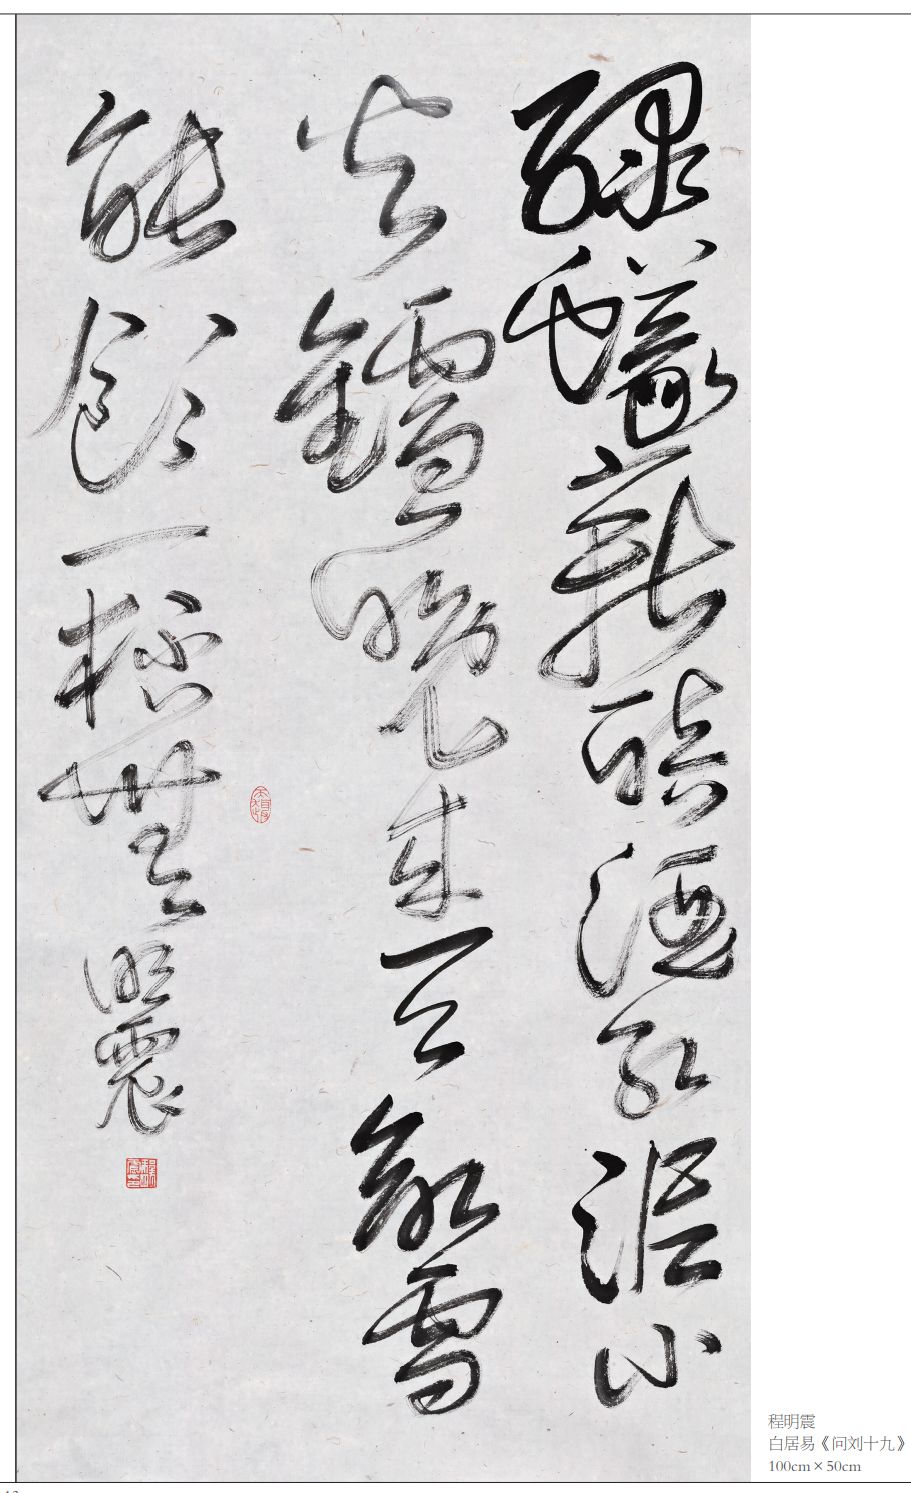 醁蟻新醅酒紅泥小
火鑪晚來天欲雪
能飲一桮無 明震
程明震
白居易《问刘十九》
100cm×50cm